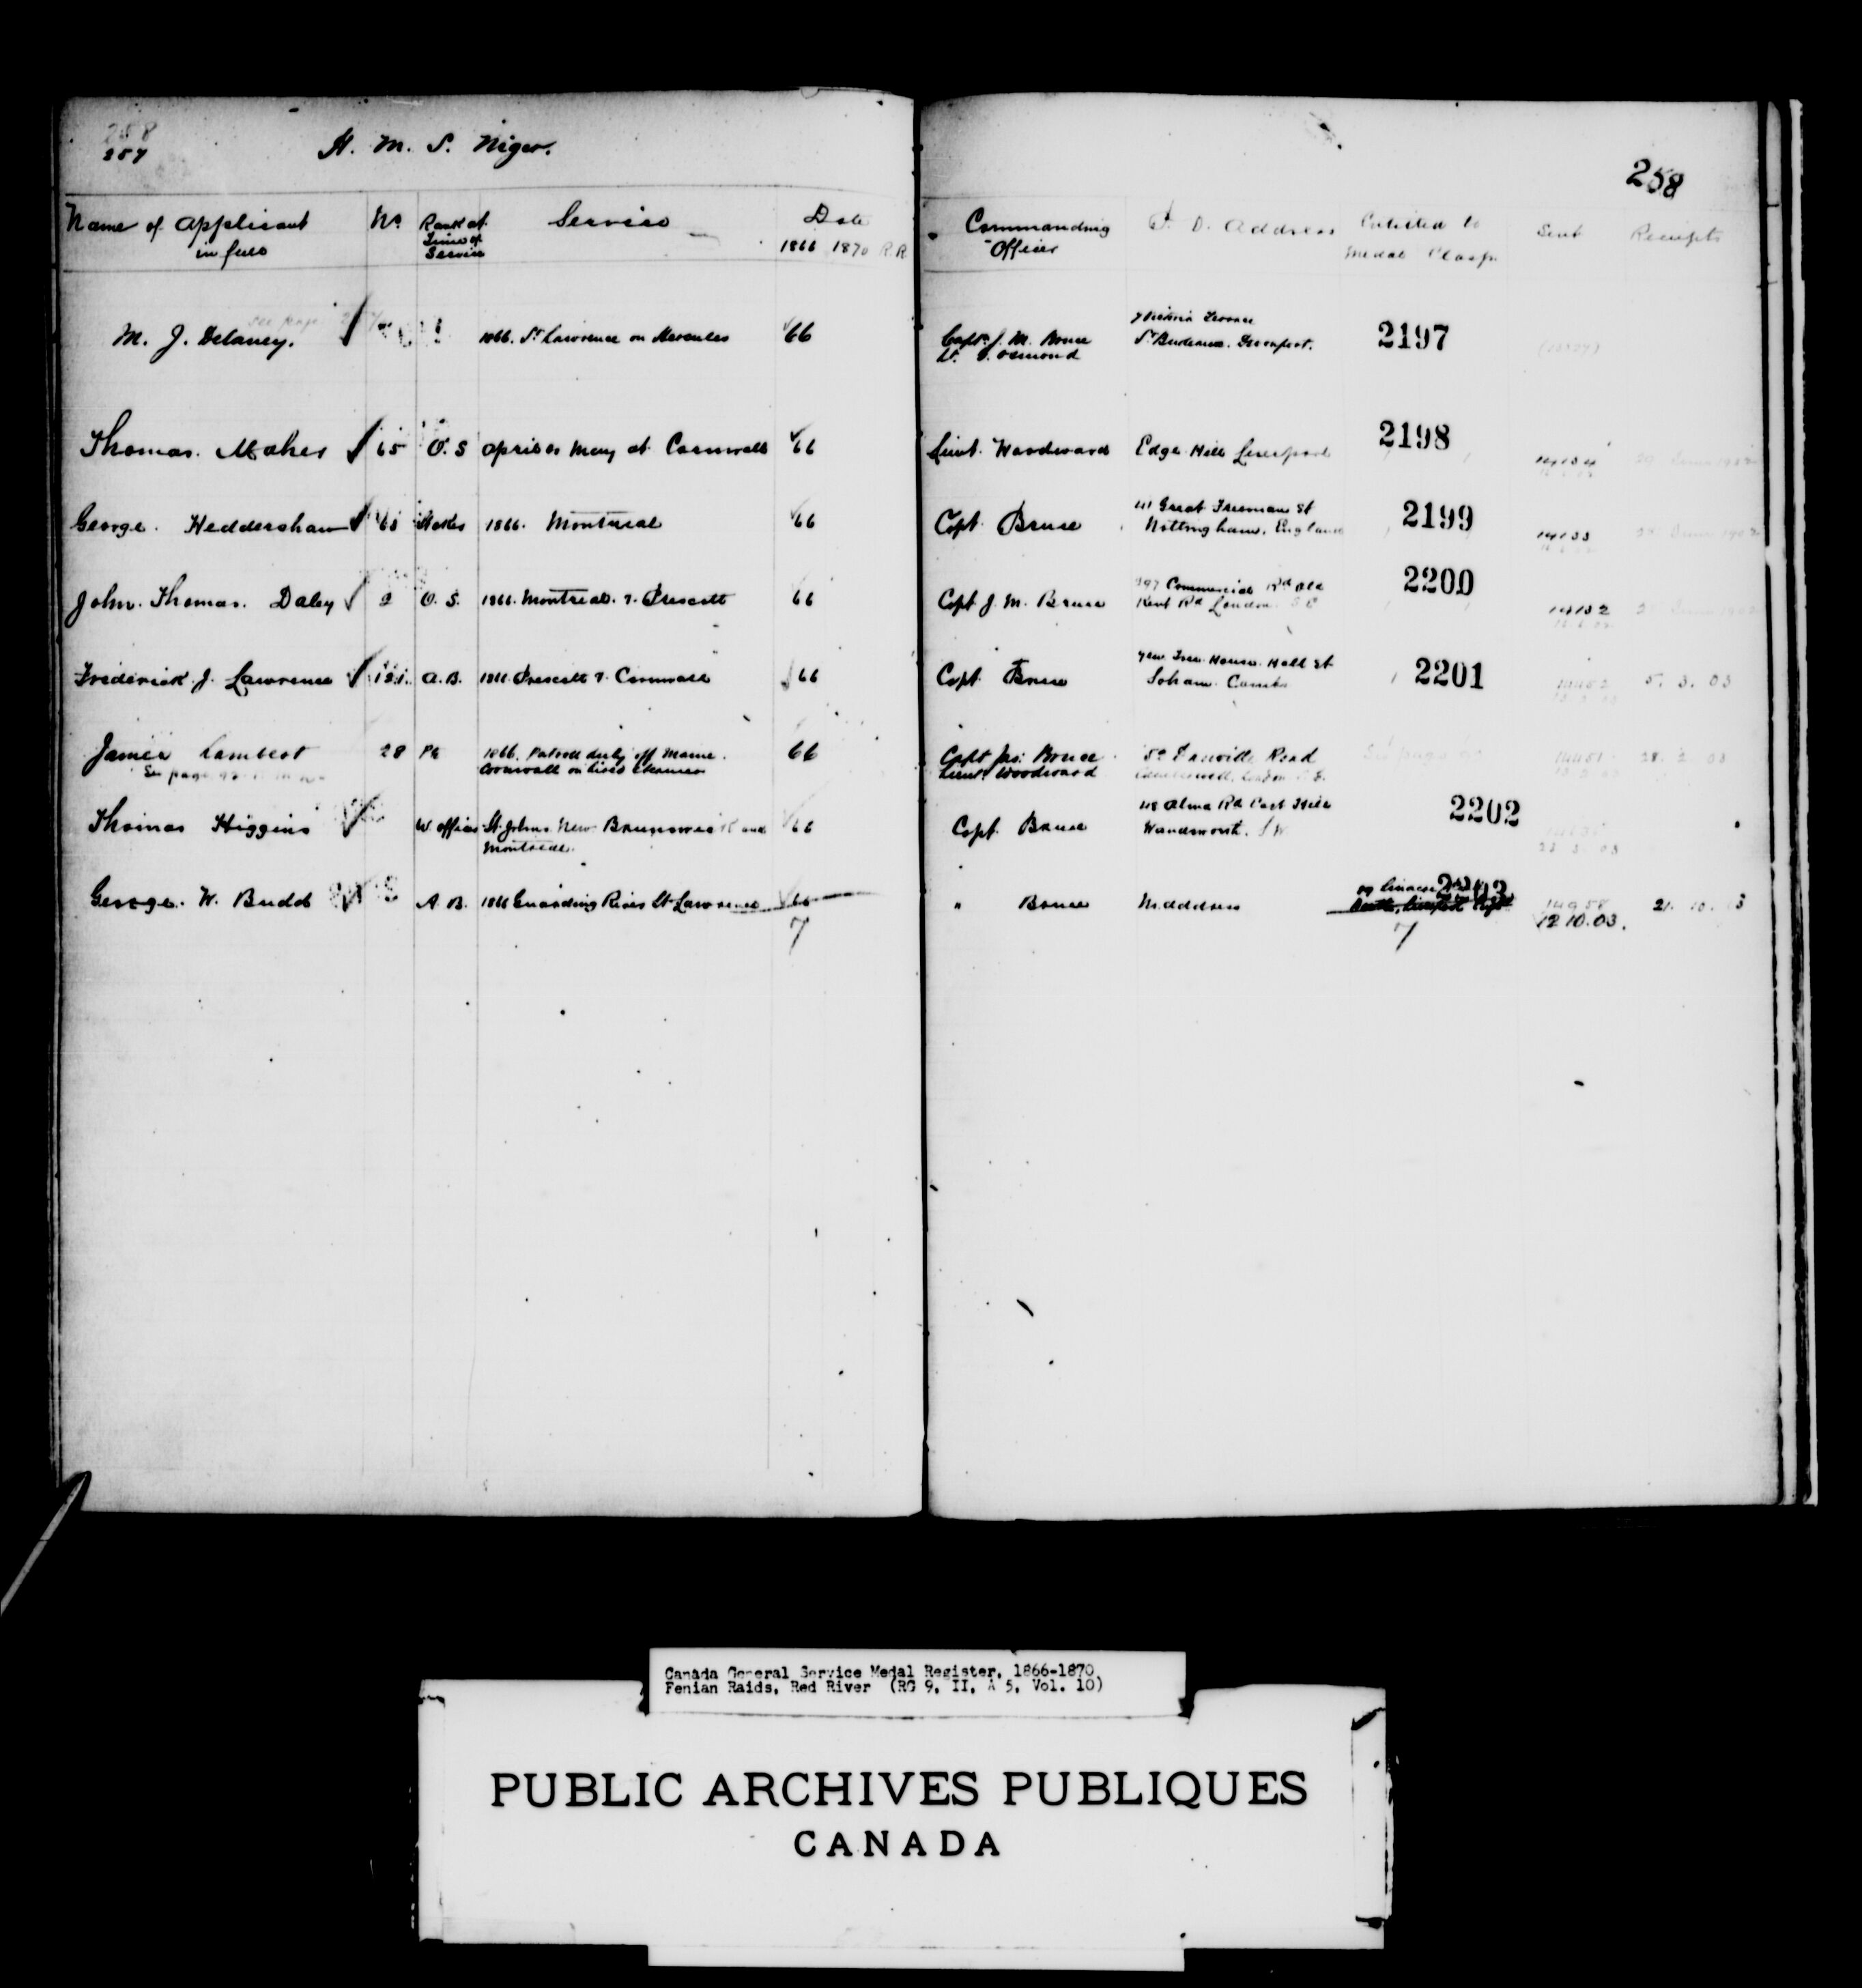 258
257
H. M. S. Niger.
258
Name of Applicant in full
No
Rank at Time of Service
Service
Date
1866 1870 R.R
Commanding Officer
P. O. Address
Entitled to Medal Clasp
Sent
Receipts
M. J. Delaney.
1866. St Lawrence on Hercules
66
Capt. J. M. Bruce
Lt. Osmond
7 Victoria Terrace
St Budeaux. Devonport.
2197
Thomas. Maher
65
O. S
April or May at Cornwall
66
Lieut. Woodward
Edge Hill Liverpool
2198
14134
George. Heddershaw
1866. Montreal
66
Capt Bruce
Great Freeman St
Nottingham, England
2199
14133
John. Thomas. Daley
2
O. S.
1866. Montreal. & Prescott
66
Capt J. M. Bruce
Commercial Rd Old
Kent Rd London S E
2200
14132
Frederick. J. Lawrence
121
A. B.
1866. Prescott & Cornwall
66
Capt Bruce
Yew Tree House Hall St
Soham Cambs
2201
5. 3. 03
James Lambert
See page
28
1866. Patroll duty off Maine.
Cornwall on river steamer
66
Capt Jas. Bruce
Lieut Woodward
Danville Road
Camberwell, London S. E.
14451
28. 2. 03
Thomas Higgins
W. officer
St. Johns New Brunswick and
Montreal.
66
Capt. Bruce
Alma Rd East Hill
Wandsworth. S W
2202
George. W. Budd
A. B.
1866 Guarding River St Lawrence
66
7
" Bruce
No address
2203
7
14958
12 10. 03.
21. 10. 03
Canada General Service Medal Register, 1866-1870
Fenian Raids, Red River (RG 9, II, A 5, Vol. 10)
PUBLIC ARCHIVES PUBLIQUES
CANADA